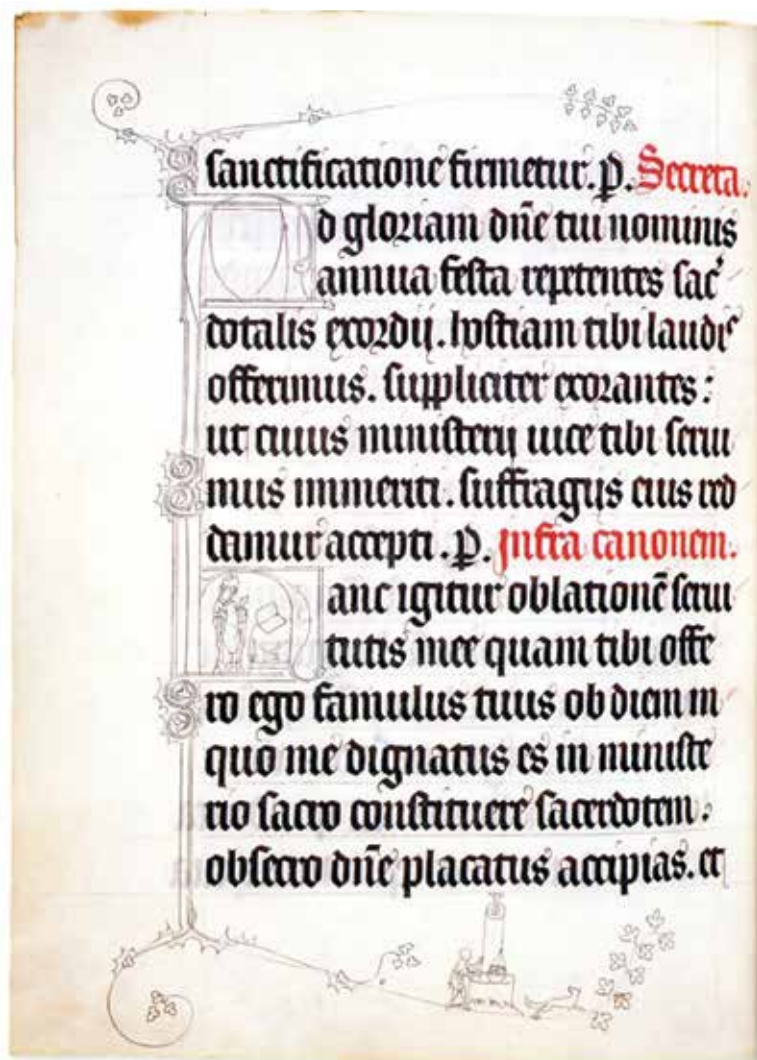 sanctificatione firmetur. p. Secreta.
d gloriam dn̄e tui nominis
annua festa repetentes sac͛
dotalis exordij. hostiam tibi laudis
offerimus. suppliciter exorantes:
ut cuius ministerij uice tibi serui
mus immeriti. suffragijs eius red
damur accepti. p. Infra canonem.
anc igitur oblationē serui
tutis mee quam tibi offe
ro ego famulus tuus ob diem in
quo me dignatus es in ministe
rio sacro constituere sacerdotem:
obsecro dn̄e placatus accipias. et